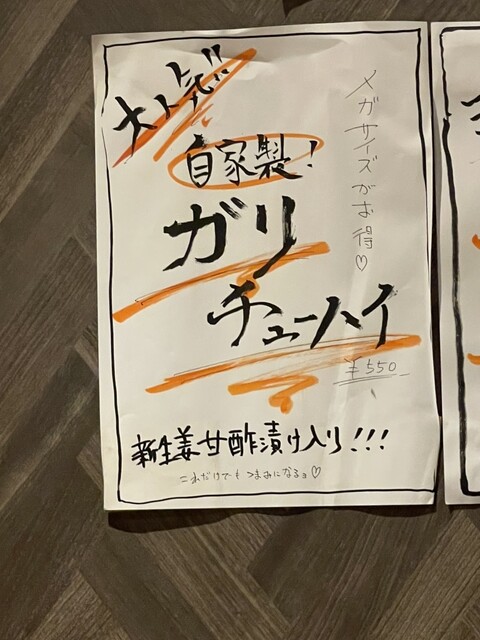 大人気!!
メガサイズがお得♡
自家製!
ガリ
チューハイ
¥550
新生姜甘酢漬け入り!!!
これだけでもつまみになるヨ♡